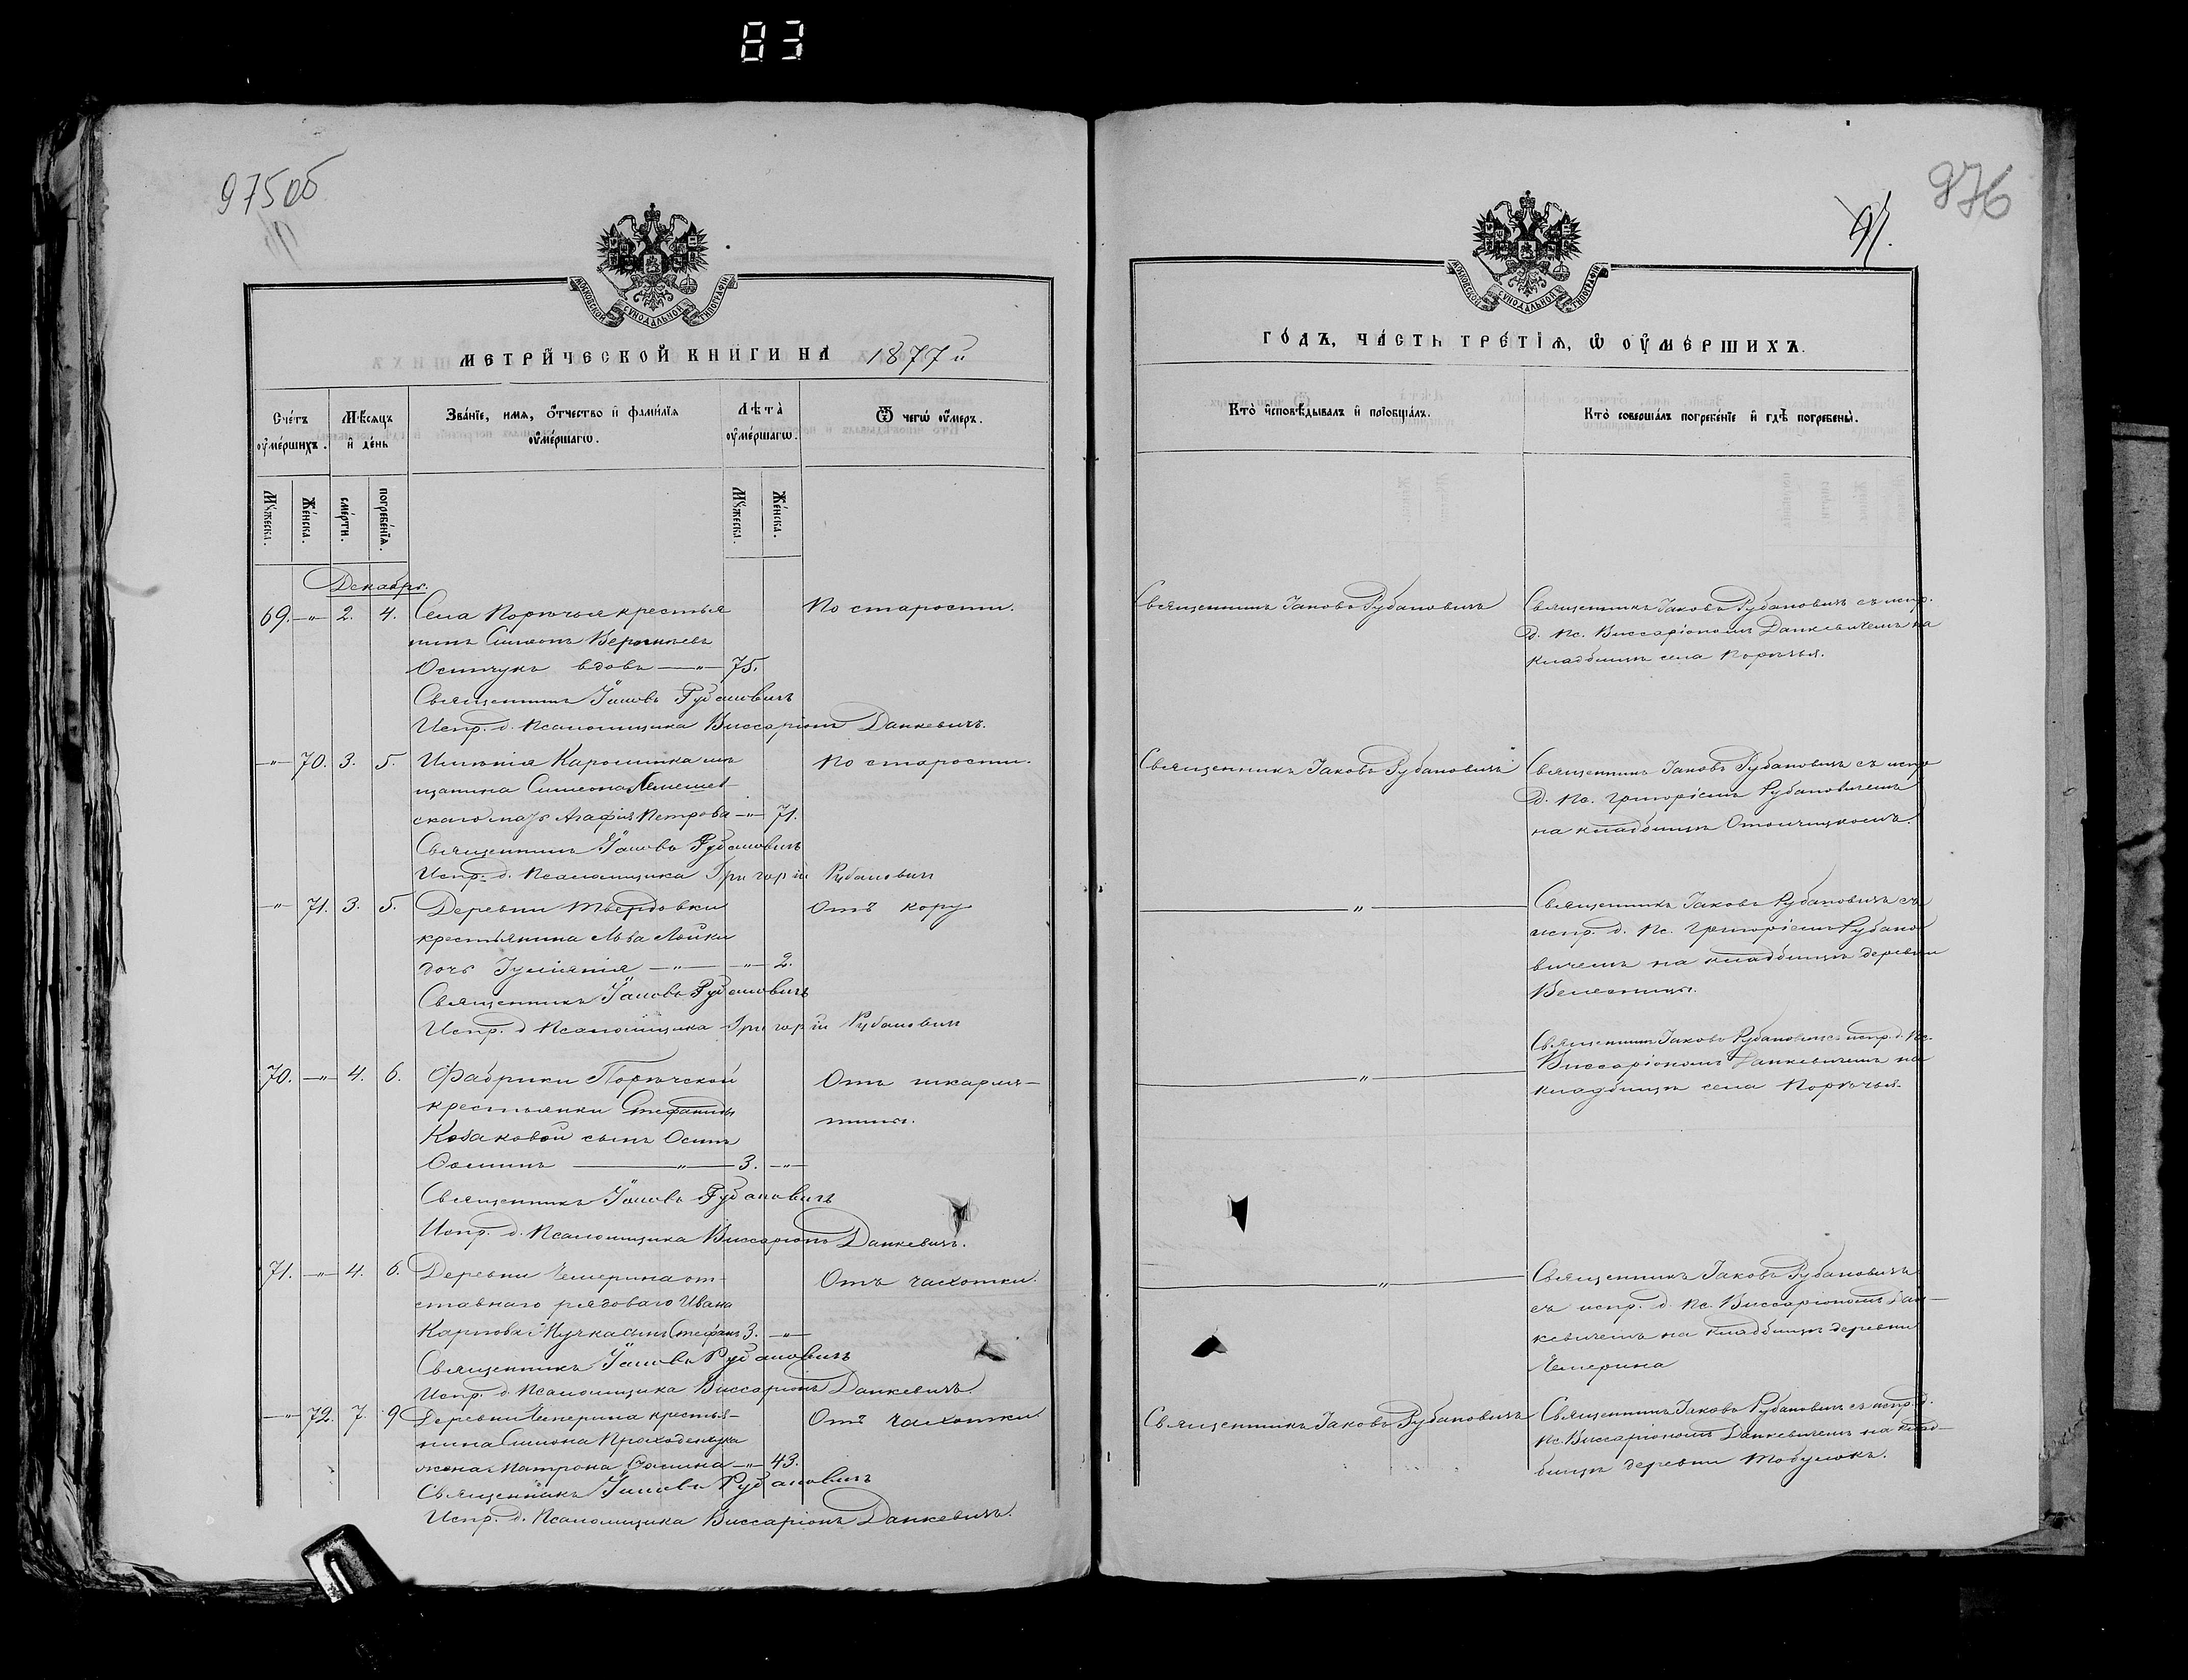 83
975об
976
91.
МОСКОВСКОЙ СѴНОДАЛЬНОЙ ТИПОГРАФІИ
МЕТРИ́ЧЕСКОЙ КНИ́ГИ НА 1877 й
Сче́тъ ᲂу҆ме́ршихъ.
Мѣ́сяцъ и҆ де́нь
Зва́нїе, и҆мѧ, ѻ҆́тчество и҆ фами́лїѧ ᲂу҆ме́ршагѡ.
Лѣ́та ᲂу҆ме́ршагѡ.
Ѿ чегѡ̀ ᲂу҆́меръ.
Мꙋ́жеска.
Же́нска.
сме́рти.
погребе́нїѧ.
Мꙋ́жеска.
Же́нска.
Декабрь.
69. —〃— 2. 4. Села Порѣчья крестья По старости.
нинъ Симеонъ
Осипчукъ вдовъ —〃— 75.
Священникъ Іаковъ Рубановичъ
Испр. д. Псаломщика Виссаріонъ Данкевичъ.
—〃— 70. 3. 5. Имѣнія Каролинка мѣ По старости.
щанина Симеона
скаго мать Агафія Петрова —〃— 71.
Священникъ Іаковъ Рубановичъ
Испр. д. Псаломщика Григорій Рубанович
—〃— 71. 3. 5. Деревни Твердовки Отъ кору
крестьянина Льва Лойки
дочь Іуліанія —〃— —〃— 2.
Священникъ Іаковъ Рубановичъ
Испр. д Псаломщика Григорій Рубанович
70. —〃— 4. 6. Фабрики Порѣчской Отъ шкарля-
крестьянки Стефаниды тины.
Кобаковой сынъ Осипъ
Ѳоминъ —〃— 3. —〃—
Священникъ Іаковъ Рубановичъ
Испр. д. Псаломщика Виссаріонъ Данкевичъ.
71. —〃— 4. 6. Деревни Чемерина от- Отъ чахотки.
ставнаго рядоваго Ивана
Карпова сынъ Стефанъ 3. —〃—
Священникъ Іаковъ Рубановичъ
Испр. д Псаломщика Виссаріонъ Данкевичъ.
—〃— 72. 7. 9 Деревни Чемерина крестья- Отъ чахотки
нина Симона
жена Матрона Ѳомина —〃— 43.
Священникъ Іаковъ Рубановичъ
Испр. д. Псаломщика Виссаріонъ Данкевичъ.
МОСКОВСКОЙ СѴНОДАЛЬНОЙ ТИПОГРАФІИ
ГО́ДЪ, ЧА́СТЬ ТРЕ́ТЇѦ, Ѡ҆ ОУ҆МЕ́РШИХЪ.
Кто̀ и҆сповѣ́дывалъ и҆ прїѡбща́лъ.
Кто̀ соверша́лъ погребе́нїе и҆ гдѣ̀ погребены̀.
Священникъ Іаковъ Рубановичъ
Священникъ Іаковъ Рубановичъ съ испр.
д. Пс. Виссаріономъ Данкевичемъ на
кладбищѣ села Порѣчья.
Священникъ Іаковъ Рубановичъ
Священникъ Іаковъ Рубановичъ съ испр
д. Пс. Григоріемъ Рубановичемъ
на кладбищѣ Отолчицкомъ.
—〃—
Священникъ Іаковъ Рубановичъ съ
испр. д. Пс. Григоріемъ Рубано
вичемъ на кладбищѣ деревни
Велесницы.
—〃—
Священникъ Іаковъ Рубановичъ съ испр. д. Пс.
Виссаріономъ Данкевичемъ на
кладбищѣ села Порѣчья.
—〃—
Священникъ Іаковъ Рубановичъ
съ испр. д. Пс. Виссаріономъ Дан-
кевичемъ на кладбищѣ деревни
Чемерина
Священникъ Іаковъ Рубановичъ
Священникъ Іаковъ Рубановичъ съ испр. д.
Пс. Виссаріономъ Данкевичемъ на клад-
бищѣ деревни Тобулокъ.